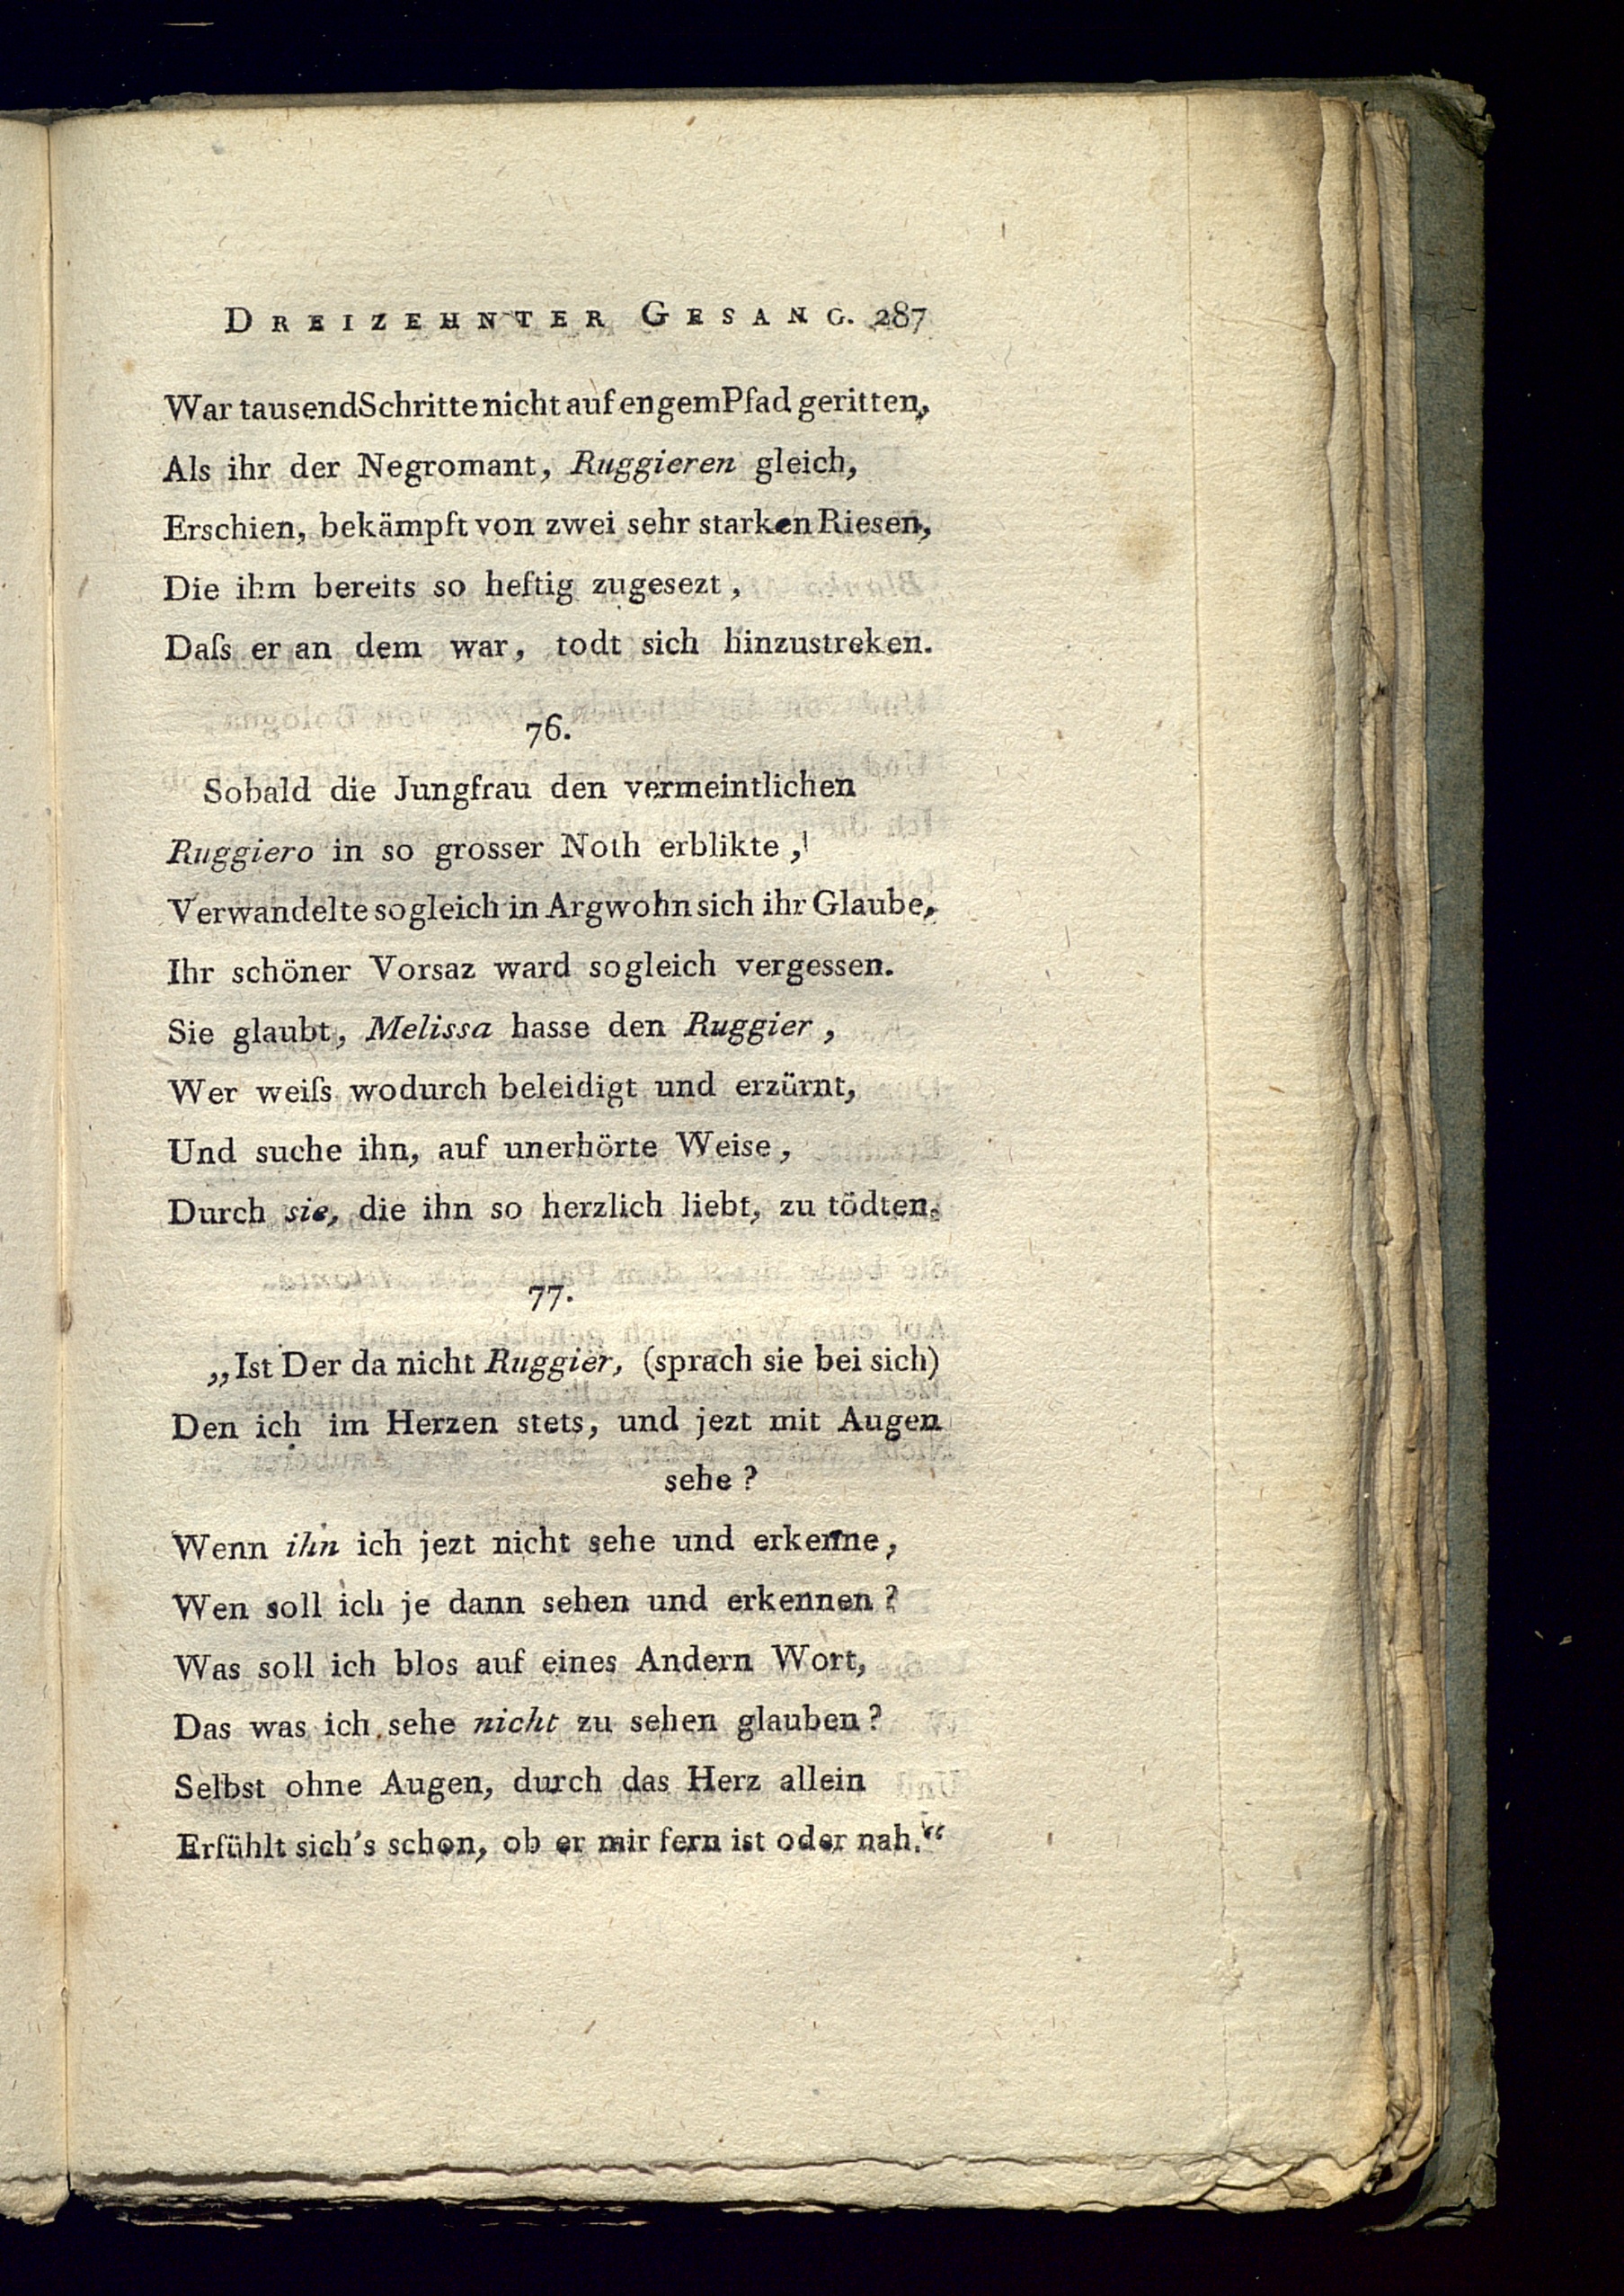 DREIZEHNTER GESANG. 287
War tausend Schritte nicht auf engem Pfad geritten,
Als ihr der Negromant, Ruggieren gleich,
Erschien, bekämpft von zwei sehr starken Riesen,
Die ihm bereits so heftig zugesezt,
Daſs er an dem war, todt sich hinzustreken.
76.
Sobald die Jungfrau den vermeintlichen
Ruggiero in so grosser Noth erblikte,
Verwandelte sogleich in Argwohn sich ihr Glaube,
Ihr schöner Vorsaz ward sogleich vergessen.
Sie glaubt, Melissa hasse den Ruggier,
Wer weiſs wodurch beleidigt und erzürnt,
Und suche ihn, auf unerhörte Weise,
Durch sie, die ihn so herzlich liebt, zu tödten.
77.
„Ist Der da nicht Ruggier, (sprach sie bei sich)
Den ich im Herzen stets, und jezt mit Augen
sehe?
Wenn ihn ich jezt nicht sehe und erkenne,
Wen soll ich je dann sehen und erkennen?
Was soll ich blos auf eines Andern Wort,
Das was ich sehe nicht zu sehen glauben?
Selbst ohne Augen, durch das Herz allein
Erfühlt sich's schon, ob er mir fern ist oder nah.“